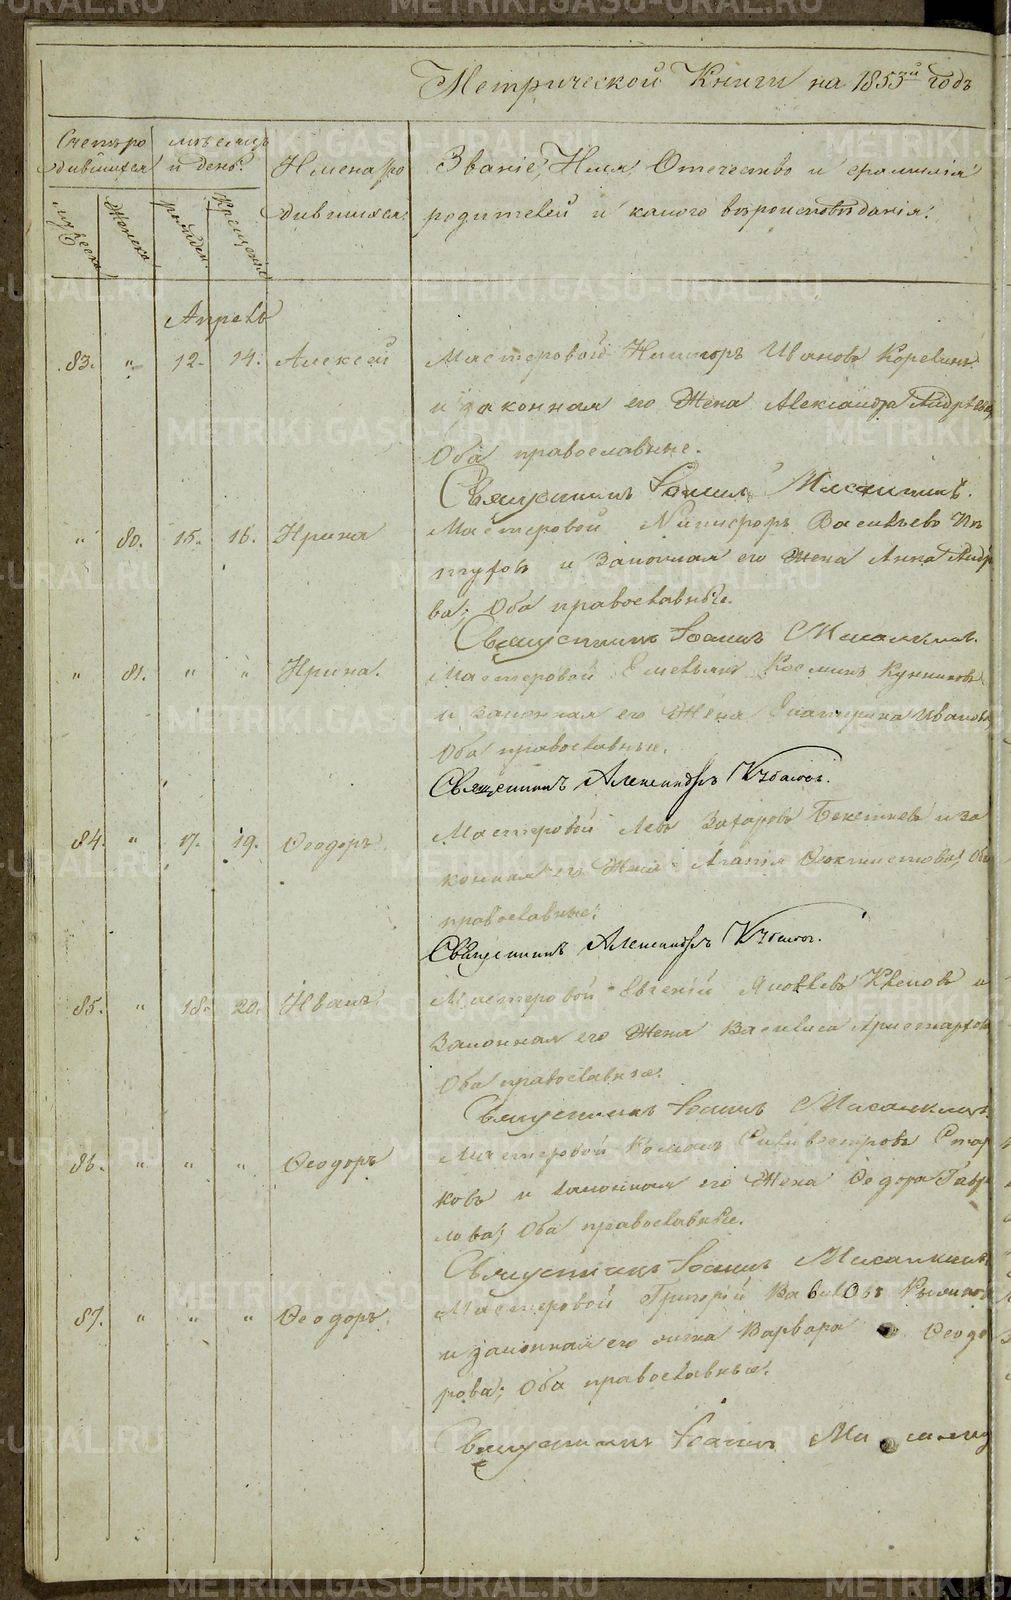 Метрической Книги на 1855й годъ
Счетъ ро
дившихся
мѣсяцъ
и день.
Имена ро
дившихся.
Званіе, Имя, Отечество и фамилія
родителей и какого вѣроисповѣданія.
Мужеска
Женска
рожден.
Крещенія
Апрель
83. " 12. 14. Алексей
Мастеровой Никторъ Ивановъ
и законная его Жена Александра Андрѣева
Оба православные.
Священникъ Іоаннъ
" 80. 15. 16. Ирина
Мастеровой Никифоръ Васильевъ Пѣ
туховъ и Законная его Жена Анна Андр
ва; Оба православные.
Священникъ Іоаннъ
" 81. " " Ирина.
Мастеровой Емельянъ Косминъ
и законная его Жена Екатерина Иванов
Оба православные.
Священникъ Александръ
84. " 17. 19. Ѳеодоръ
Мастеровой Левъ Захаровъ и за
конная его Жена Агапія Ѳеоктистова; Оба
православные;
Священникъ Александръ
85. " 18. 20. Иванъ
Мастеровой Евгеній Яковлевъ и
Законная его Жена Василиса Аристархова
Оба православные.
Священникъ Іоаннъ
86. " " " Ѳеодоръ
Мастеровой Романъ Сильвестровъ Стар
ковъ и законная его Жена Ѳедора Гавр
лова; Оба православные.
Священникъ Іоаннъ
87. " " " Ѳеодоръ.
Мастеровой Григорій Вавиловъ
и законная его жена Варвара Ѳеодо
рова; Оба православные.
Священникъ Іоаннъ
METRIKI.GASO-URAL.RU